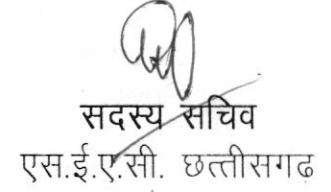 सदस्य सचिव
एस.ई.ए.सी. छत्तीसगढ